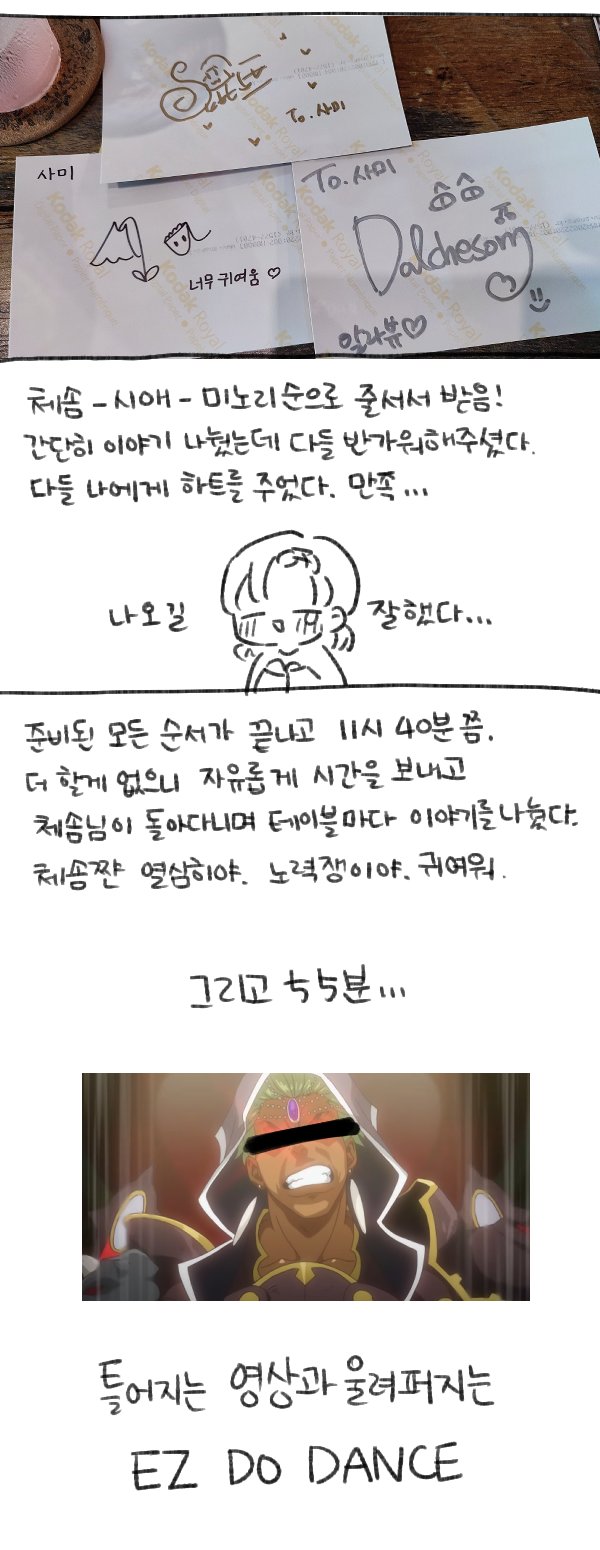 To. 사미
사미
너무 귀여움 ♡
To. 사미
Dalchesom
알라뷰♡
Kodak Royal
체솜 - 시애 - 미노리 순으로 줄서서 받음!
간단히 이야기 나눴는데 다들 반가워해주셨다.
다들 나에게 하트를 주었다. 만족...
나오길 잘했다...
준비된 모든 순서가 끝나고 11시 40분 쯤.
더 할게 없으니 자유롭게 시간을 보내고
체솜님이 돌아다니며 테이블마다 이야기를 나눴다.
체솜짠 열삼히야. 노력쟁이야. 귀여워.
그리고 55분...
틀어지는 영상과 울려퍼지는
EZ DO DANCE